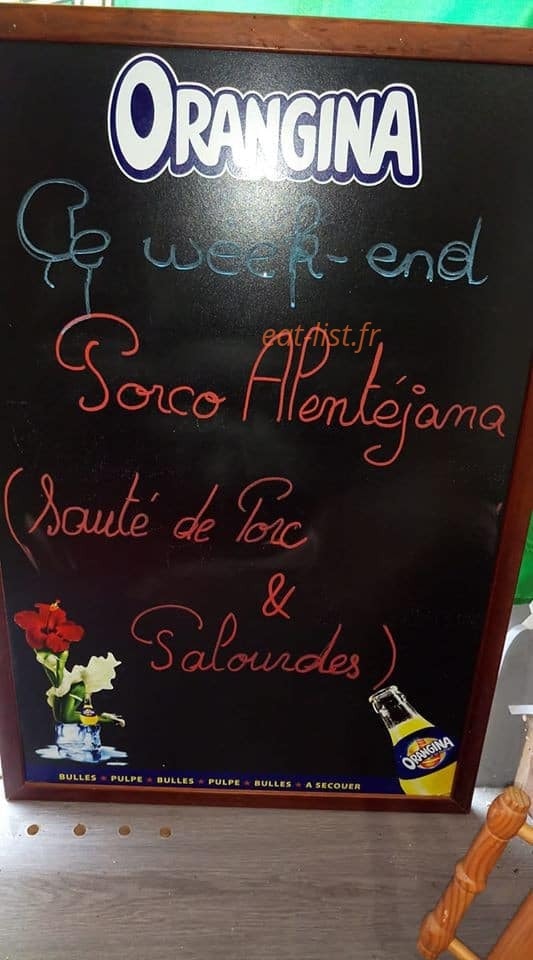 ORANGINA
Ce week-end
eat-list.fr
Porco Alentéjana
(Sauté de Porc
&
Palourdes)
ORANGINA
BULLES ★ PULPE ★ BULLES ★ PULPE ★ BULLES ★ A SECOUER